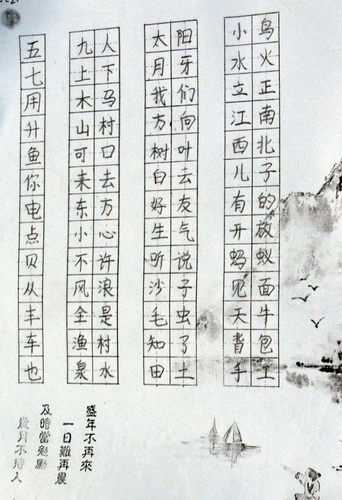 鸟火正南北子的放蚁面牛包土
小水立江西儿有开蚂见天背手
阳牙们向叶去友气说子虫了土
太月我方树白好生听沙毛知田
人下马村口去方心许浪是村水
九上木山可来东小不风全渔泉
五七用升鱼你电点贝从丰车也
盛年不再來
一日難再晨
及時當勉勵
歲月不待人